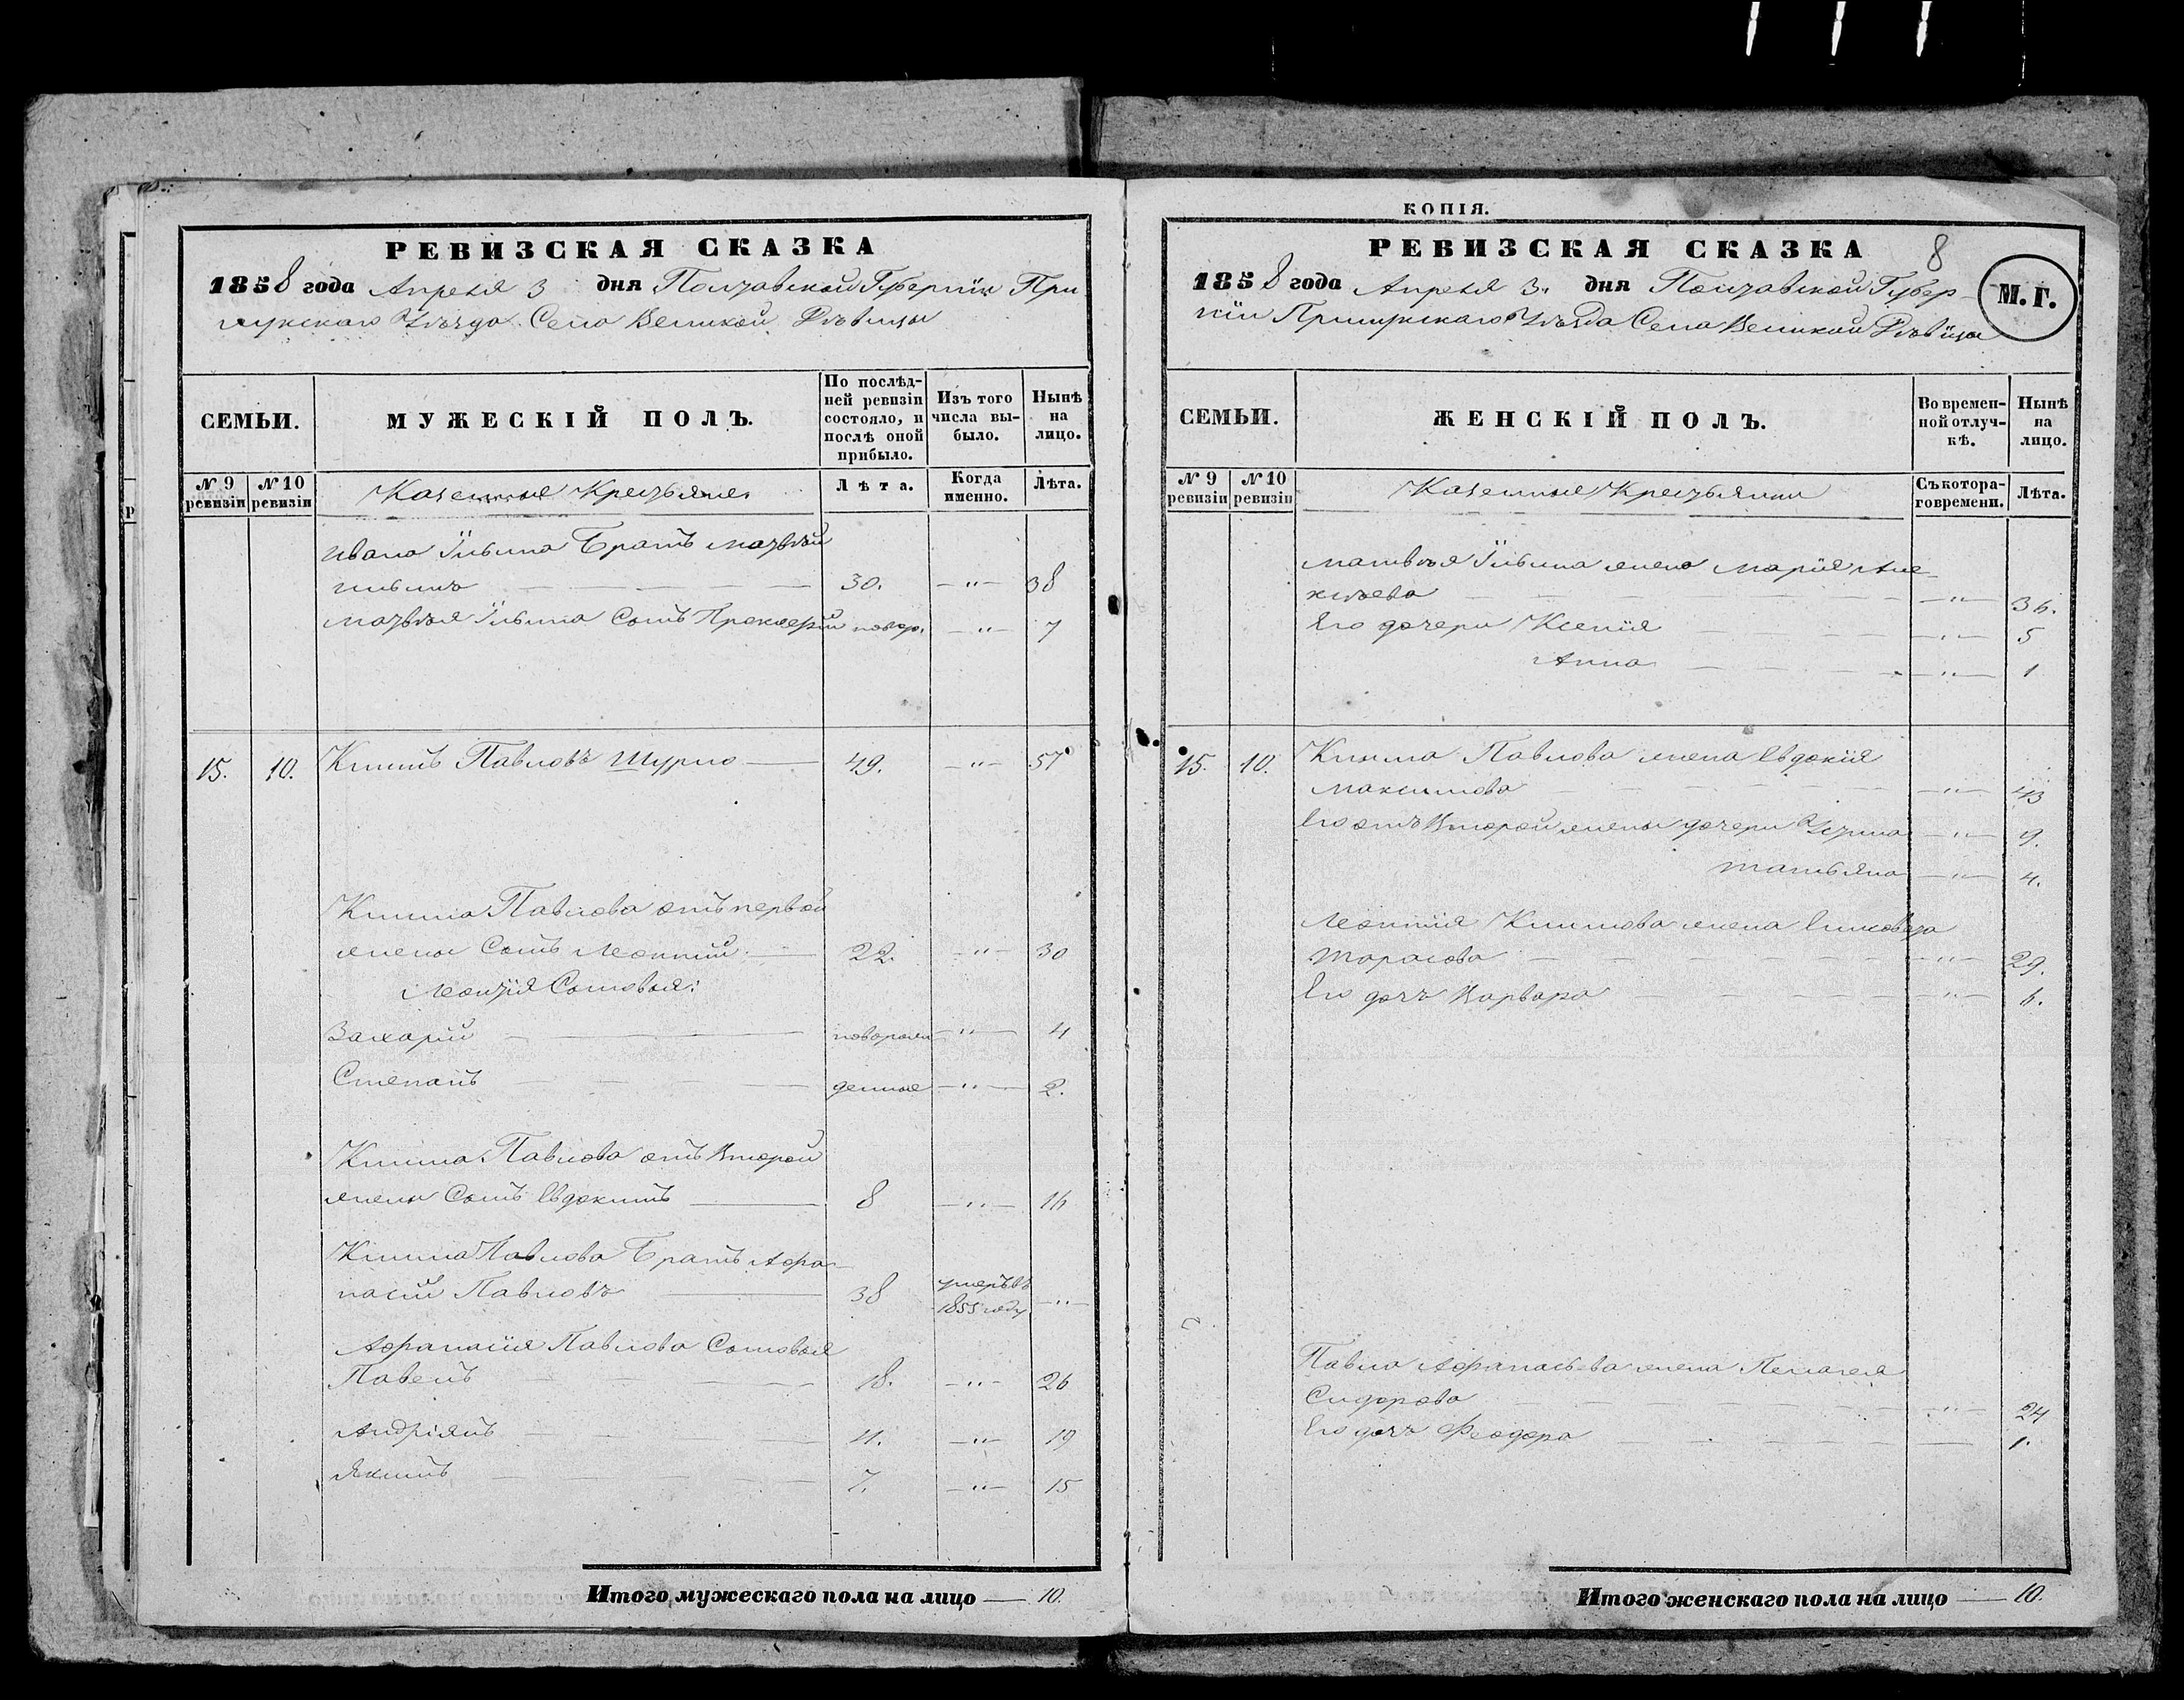 РЕВИЗСКАЯ СКАЗКА
1858 года Апреля 3 дня Полтавской Губернiи При
лукскаго Уѣзда Села Великой Дѣвицы
СЕМЬИ.
МУЖЕСКIЙ ПОЛЪ.
По послѣд-
ней ревизiи
состояло, и
послѣ оной
прибыло.
Изъ того
числа вы-
было.
Нынѣ
на
лицо.
№ 9 ревизiи
№ 10 ревизiи
Казенные Крестьяне
Лѣта.
Когда именно.
Лѣта.
Ивана Ильина Братъ Матвѣй
Ильинъ 30. —"— 38
Матвѣя Ильина Сынъ Прокофiй новор. —"— 7
15. 10. Климъ Павловъ Шурло 49. —"— 57
Клима Павлова отъ первой
жены Сынъ Леонтiй 22. —"— 30
Леонтiя Сыновья:
Захарiй новорож —"— 4
Степанъ денные —"— 2.
Клима Павлова отъ Второй
жены Сынъ Евдокимъ 8 —"— 16
Клима Павлова Братъ Афа-
насiй Павловъ 38 умеръ въ 1855 году —"—
Афанасiя Павлова Сыновья
Павелъ 18. —"— 26
Андрiянъ 11. —"— 19
Якимъ 7. —"— 15
Итого мужескаго пола на лицо — 10.
КОПIЯ.
РЕВИЗСКАЯ СКАЗКА
8
1858 года Апреля 3. дня Полтавской Губер-
нiи Прилукскаго Уѣзда Села Великой Дѣвицы
М. Г.
СЕМЬИ.
ЖЕНСКIЙ ПОЛЪ.
Во времен-
ной отлуч-
кѣ.
Нынѣ
на
лицо.
№ 9 ревизiи
№ 10 ревизiи
Казенные Крестьянки
Съ котора-
го времени.
Лѣта.
Матвѣя Ильина жена Марiя Але-
ксѣева —"— 36.
Его дочери Ксенiя —"— 5
Анна —"— 1
15. 10. Клима Павлова жена Евдокiя
Максимова —"— 43
Его отъ Второй жены дочери Устина —"— 9.
Татьяна —"— 4.
Леонтiя Климова жена Елисавета
Тарасова —"— 29.
Его дочь Варвара —"— 6.
Павла Афанасьева жена Пелагея
Сидорова —"— 24
Его дочь Феодора — 1.
Итого женскаго пола на лицо — 10.